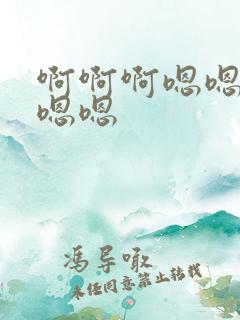 啊啊啊嗯嗯
嗯嗯
冯导噉
未经同意禁止转载